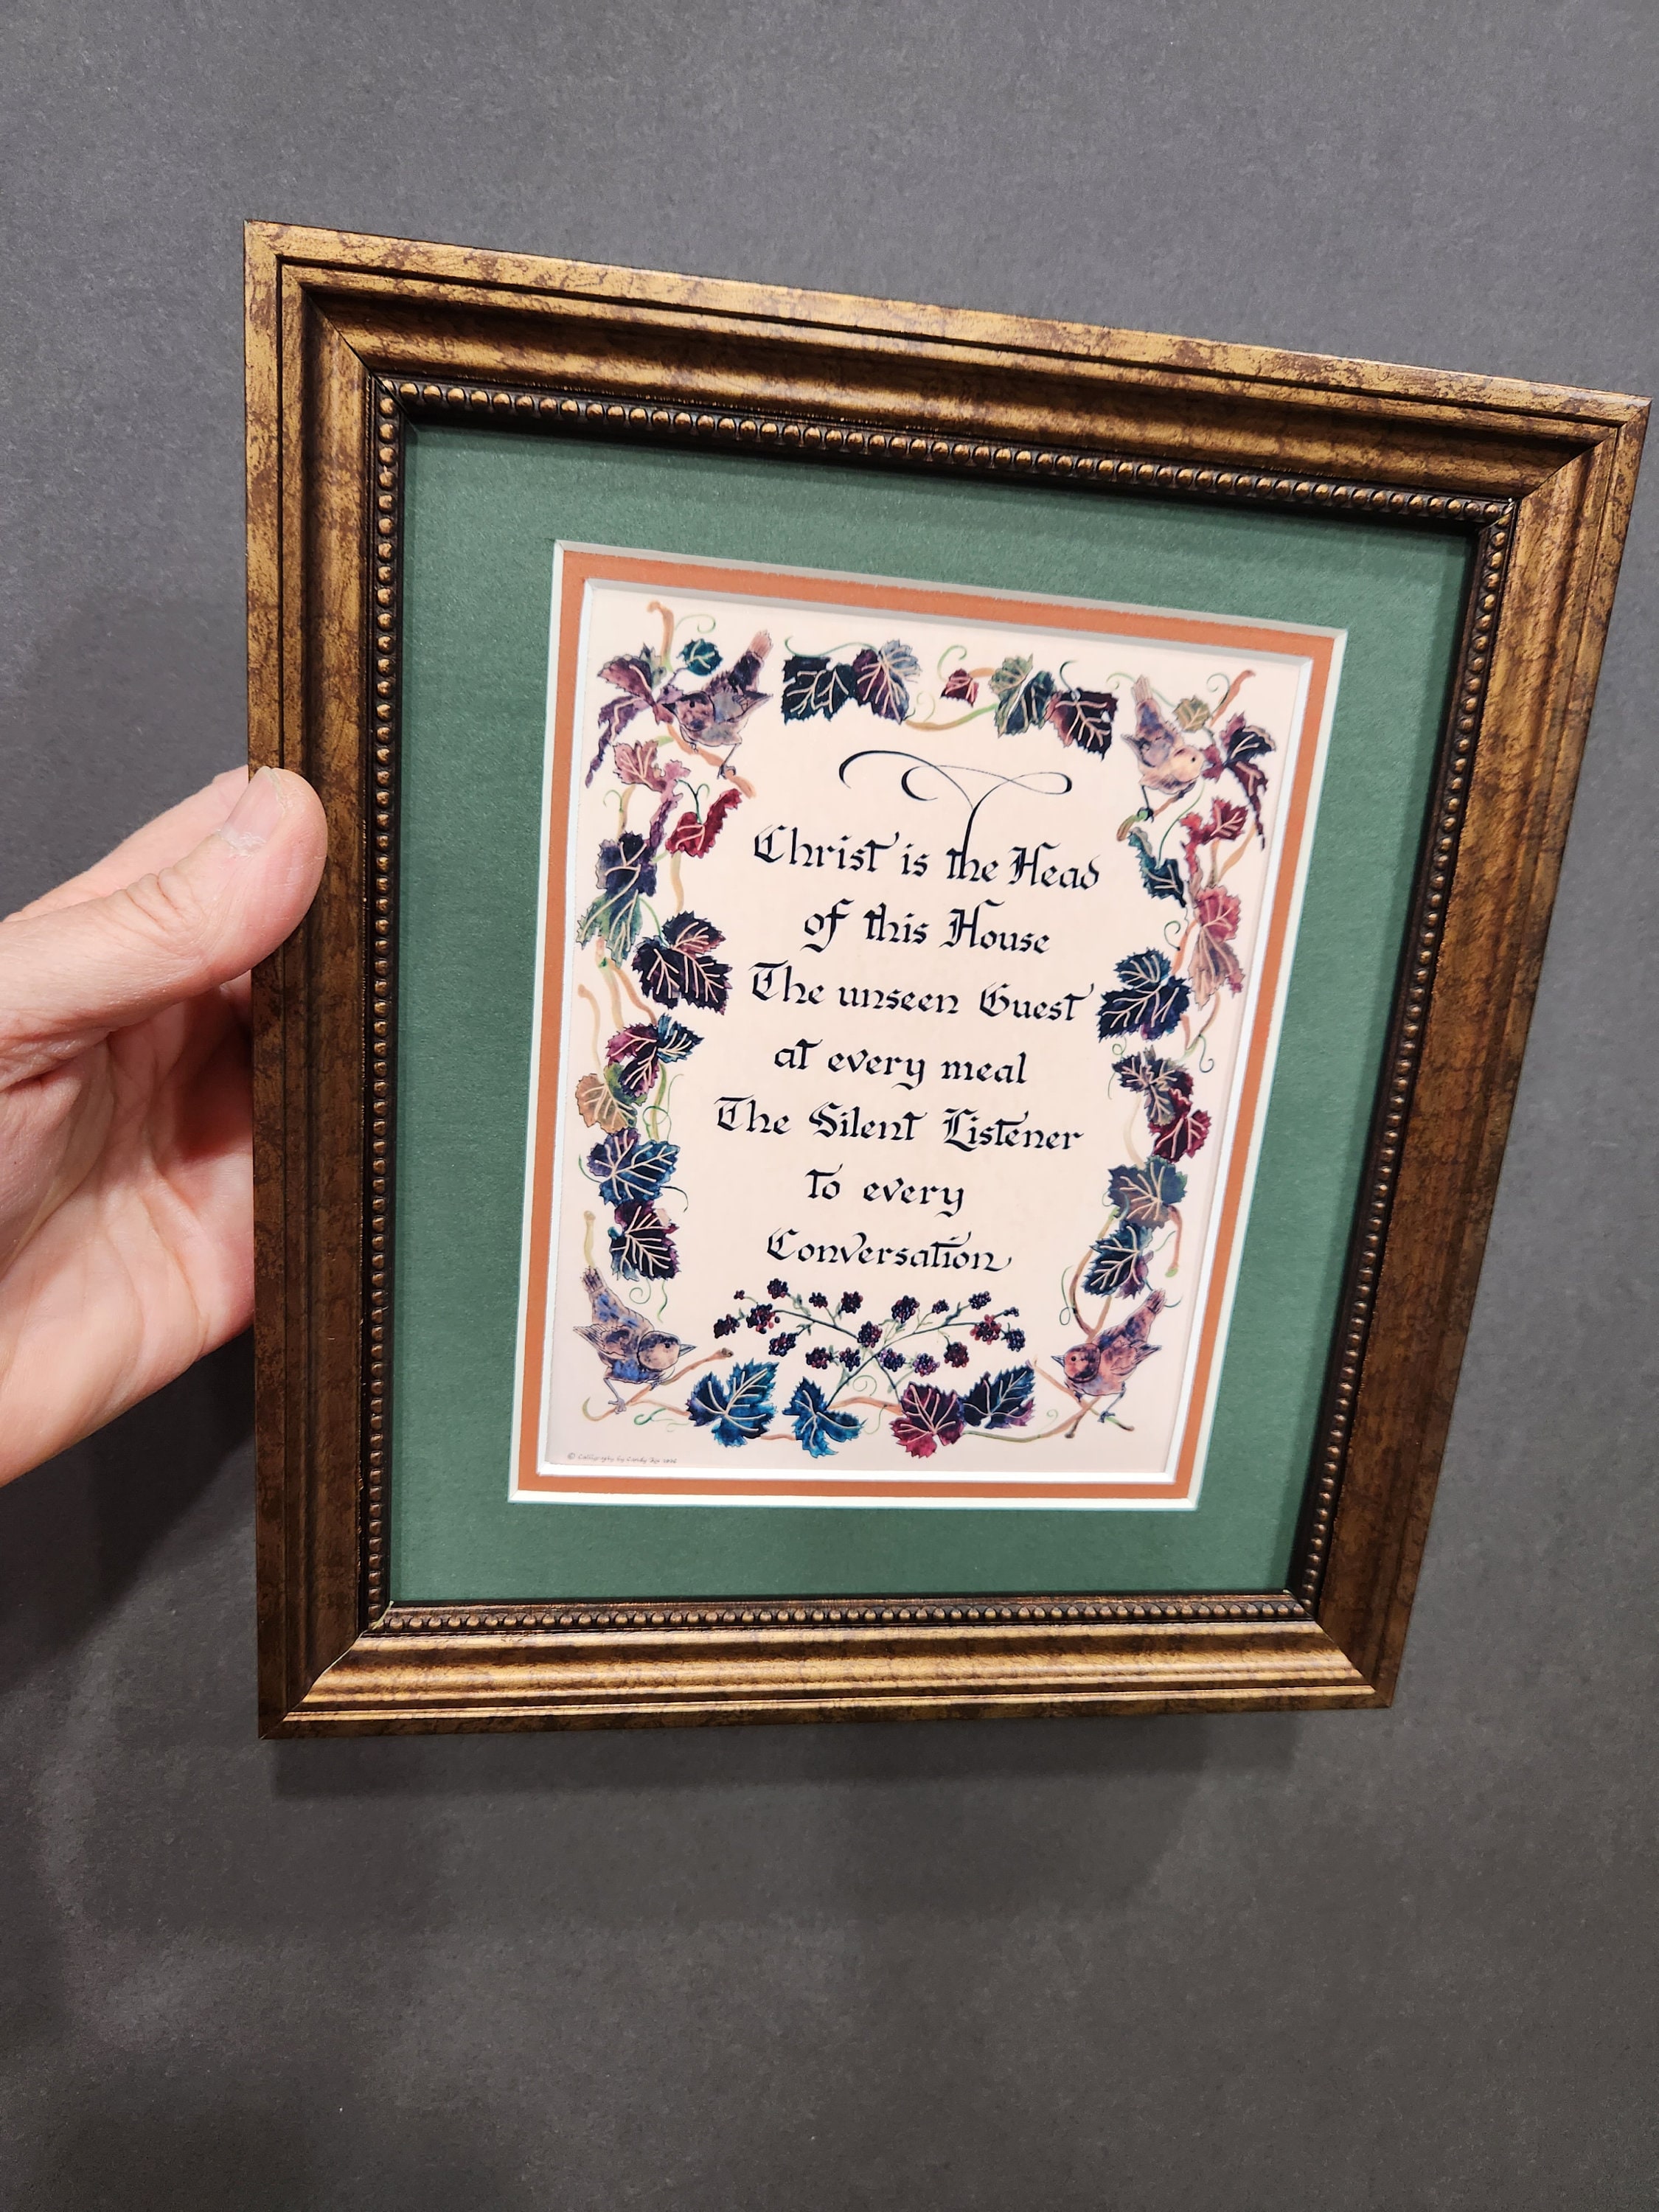 Christ is the Head
of this House
The unseen Guest
at every meal
The Silent Listener
to every
Conversation
© Calligraphy by Candy